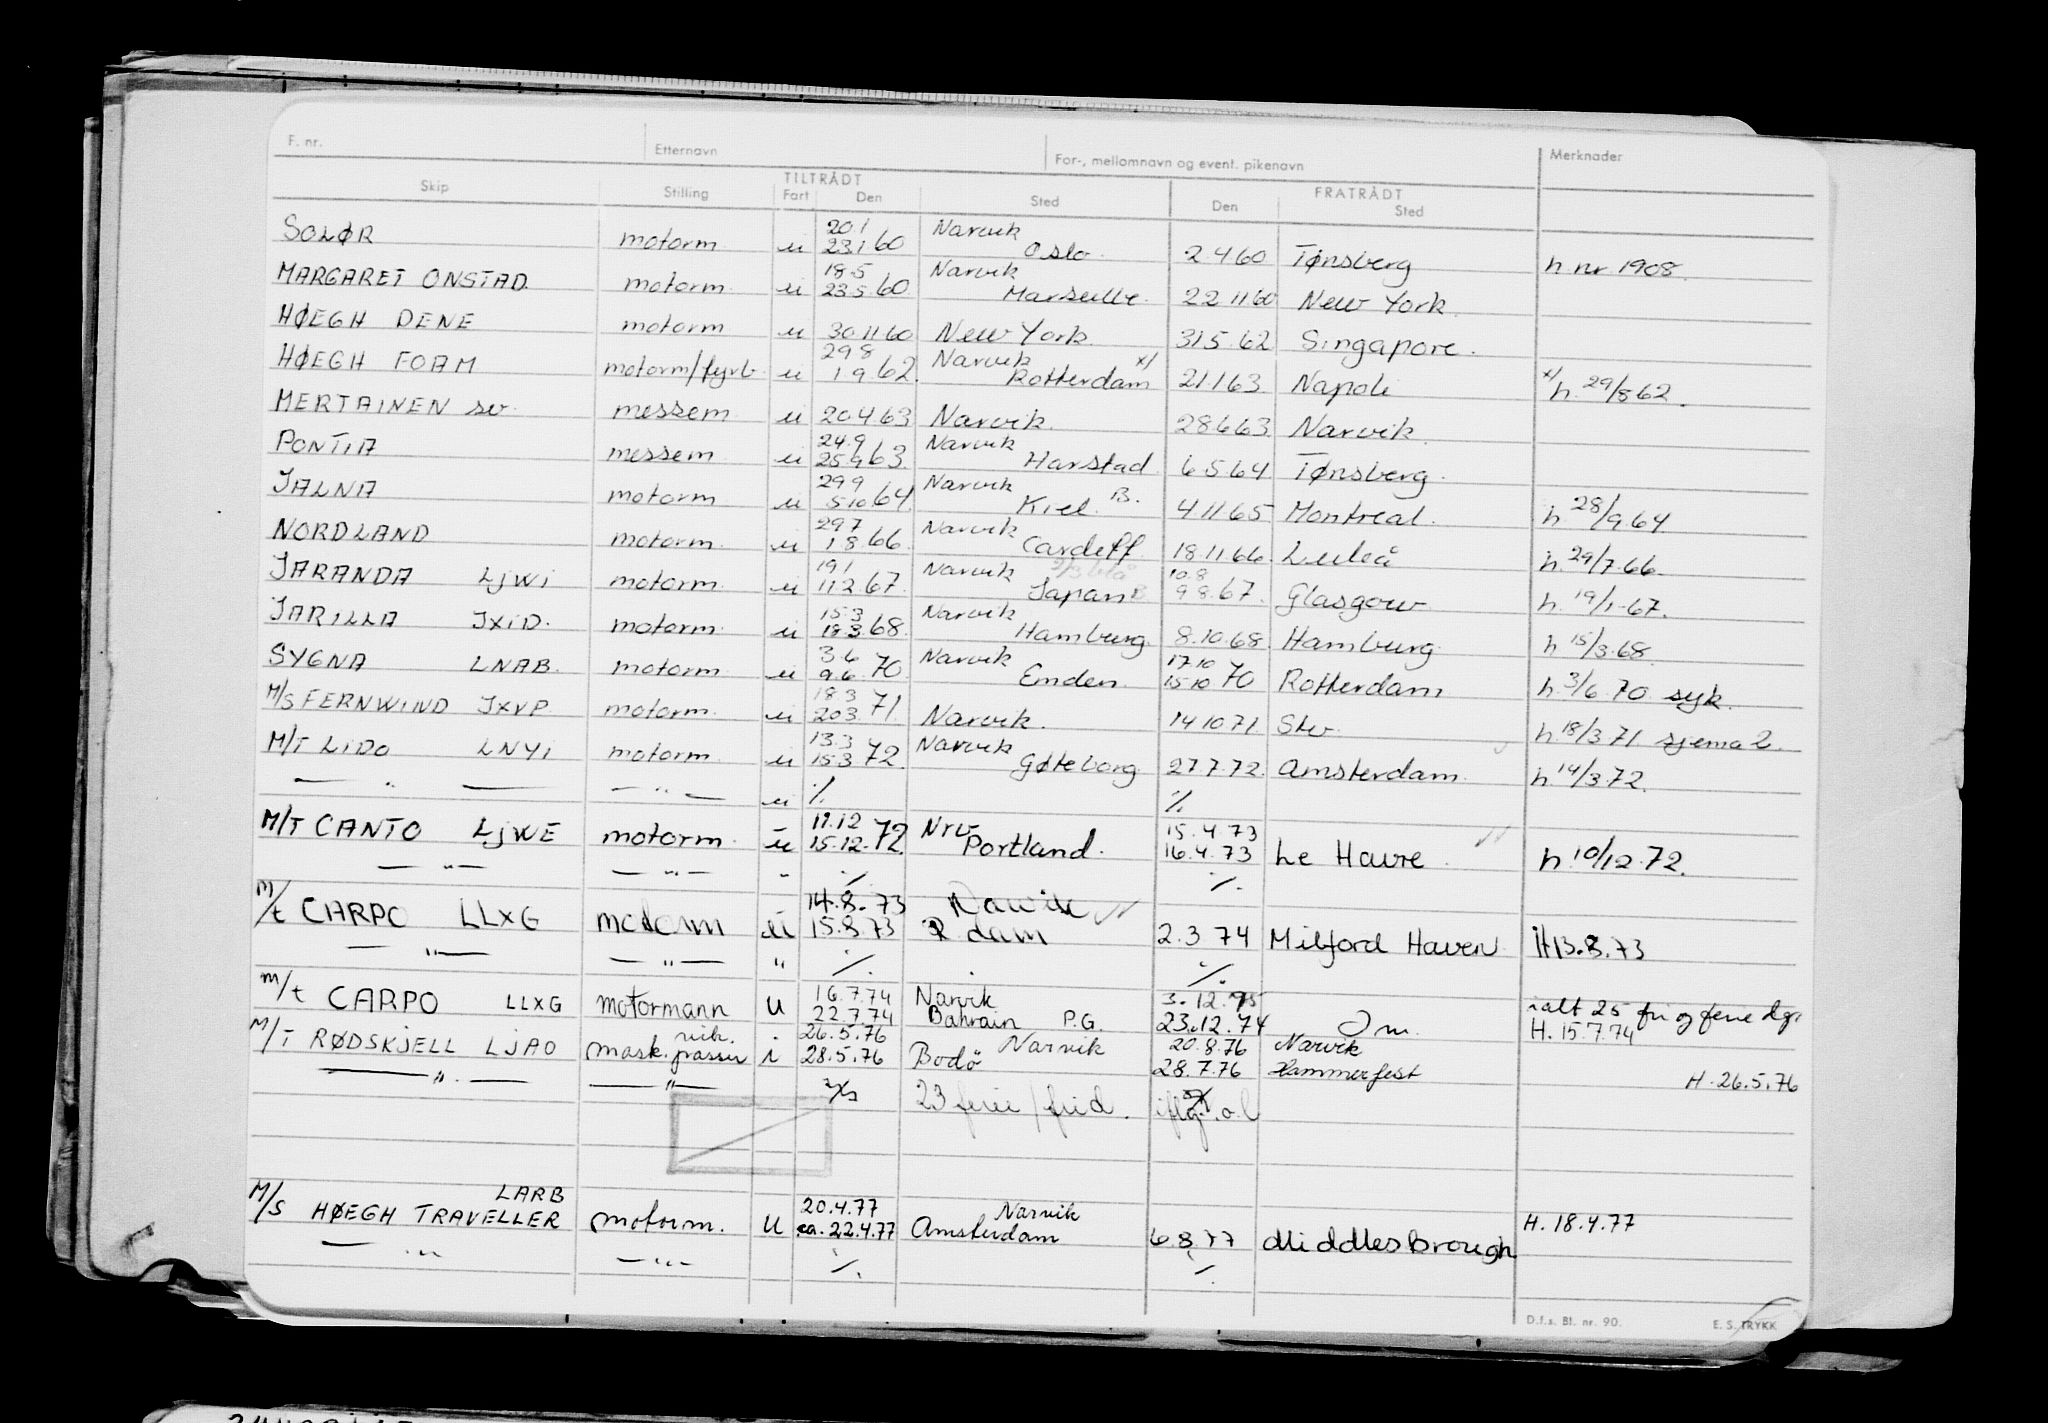 F. nr. Etternavn For-, mellomnavn og event. pikenavn Merknader
Skip Stilling TILTRÅDT Fart Den Sted FRATRÅDT Den Sted
SOLØR motorm u 20 1 23.1 60 Narvik Oslo 2 4 60 Tønsberg h nr 1908
MARGARET ONSTAD motorm u 18.5 23.5 60 Narvik Marseille 22 11 60 New York
HØEGH DENE motorm u 30 11 60 New York 31 5 62 Singapore.
HØEGH FOAM motorm/fyrb u 29 8 1 9 62 Narvik Rotterdam x/ 21.1 63 Napoli x/ h. 29/8 62
MERTAINEN sv messem u 20 4 63 Narvik. 28 6 63 Narvik
PONTIA messem u 24.9 25.9 63 Narvik Harstad 6 5 64 Tønsberg
JALNA motorm u 29 9 5 10 64 Narvik Kiel. B. 4.11 65 Montreal. h 28/9 64
NORDLAND motorm u 29 7 1 8 66 Narvik Cardeff 18.11.66 Luleå h. 29/7.66
JARANDA LJWI motorm u 19 1 11 2 67 Narvik Japan B 10.8 9 8 67 Glasgow h. 19/1-67.
JARILLA JXID. motorm u 15.3 18.3 68 Narvik Hamburg 8.10.68 Hamburg h 15/3.68
SYGNA LNAB motorm u 3.6 9.6 70 Narvik Emden 17.10 15.10 70 Rotterdam h. 3/6 70 syk.
M/S FERNWIND JXVP motorm u 18 3 20 3 71 Narvik. 14 10 71 Stv h. 18/3 71 sjema 2.
M/T LIDO LNYI motorm u 13.3 15.3 72 Narvik Gøteborg 27 7 72 Amsterdam h. 14/3.72.
— " — — " — u ./. ./.
M/T CANTO LJWE motorm. u 11.12 15.12.72 Nrv Portland. 15.4.73 16.4.73 Le Havre h. 10/12.72.
— " — — " — " ./. ./.
M/t CARPO LLXG motorm u 14.8.73 15.8.73 Narvik R dam 2.3 74 Milford Haven H13.8.73
— " — — " — " ./. ./.
m/t CARPO LLXG motormann U 16.7.74 22.7.74 Narvik Bahrain P.G. 3.12.75 23.12.74 Om. ialt 25 fri og ferie dgr H. 15.7.74
M/T RØDSKJELL LJAO mask.passer vik. i 26.5.76 28.5.76 Narvik Bodö 20.8.76 28.7.76 Narvik Hammerfest H. 26.5.76
— " — — " — 23 ferie/frid.
M/S HØEGH TRAVELLER LARB motorm. U 20.4.77 ca. 22.4.77 Narvik Amsterdam 6.8.77 Middlesbrough H. 18.4.77
— " — — " — ./. ./.
D.f.s. Bl. nr. 90. E. S. TRYKK